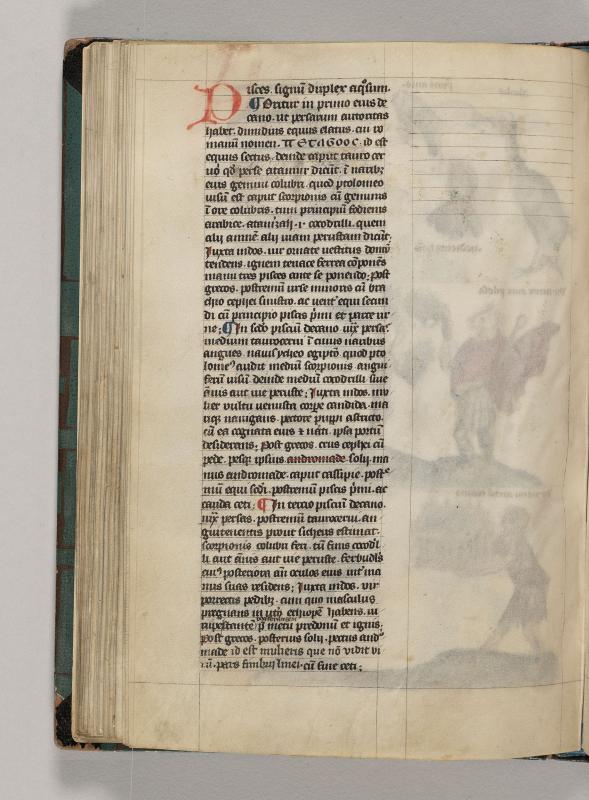 Pisces. signū duplex aq̄sum.
¶ Oritur in primo eius de
cano. ut persarum autoritas
habet. dimidius equus elatus. cui ro
manū nomen. id est
equus sectus. deinde caput tauro cer
ui qđ perse dicūt. ī narib;
eius gemini colubri. quod ptolomeo
uisū est caput scorpionis cū geminis
ī ore colubris. tum principiū
arabice. .i. cocodrilli. quem
alii amnē alii uiam perustam dicūt;
Iuxta indos. uir ornate uestitus domū
tendens. ignem tenace ferrea cōponēs
manu tres pisces ante se ponendo; Post
grecos. postremū urse minoris cū bra
chio cephei sinistro. ac uent̄ equi secun
di cū principio piscis p̄mi et parte ur
ne; ¶ In scđo pisciū decano. iux̄ persas
medium taurocerui ī cuius naribus
angues. egiptȳ quod pto
lome⁹ audit mediū scorpionis angui
ferū uisū. deinde mediū cocodrilli siue
ānis aut uie peruste; Iuxta indos. mu
lier uultu uenusta corpe candida. ma
riq; nauigans. pectore puppi astricto.
cū ea cognata eius ⁊ nati. ipsa portū
desiderans; Post grecos. crus cephei cū
pede. ipsius andromade. solū. ma
nus andromade. caput cassiepie. post
mū equi scđi. postremū piscis p̄mi. ac
cauda ceti; ¶ In tercio pisciū decano.
iux̄ persas. postremū taurocerui. an
guitenentis prout sicheus estimat.
scorpionis colubri feri. tū finis cocodˡ
li. aut ānis aut uie peruste.
cui⁹ posteriora añ oculos eius int̄ ma
nus suas residens; Iuxta indos. uir
porrectis pedib;. cum quo masculus
pregnans in ethiopē habens. ui
p̄ metu predonū et ignis;
Post grecos. posterius solii. pectus and⁹
made id est mulieris que nō uidit ui
rū. pars fimbrii linei. cū fine ceti;